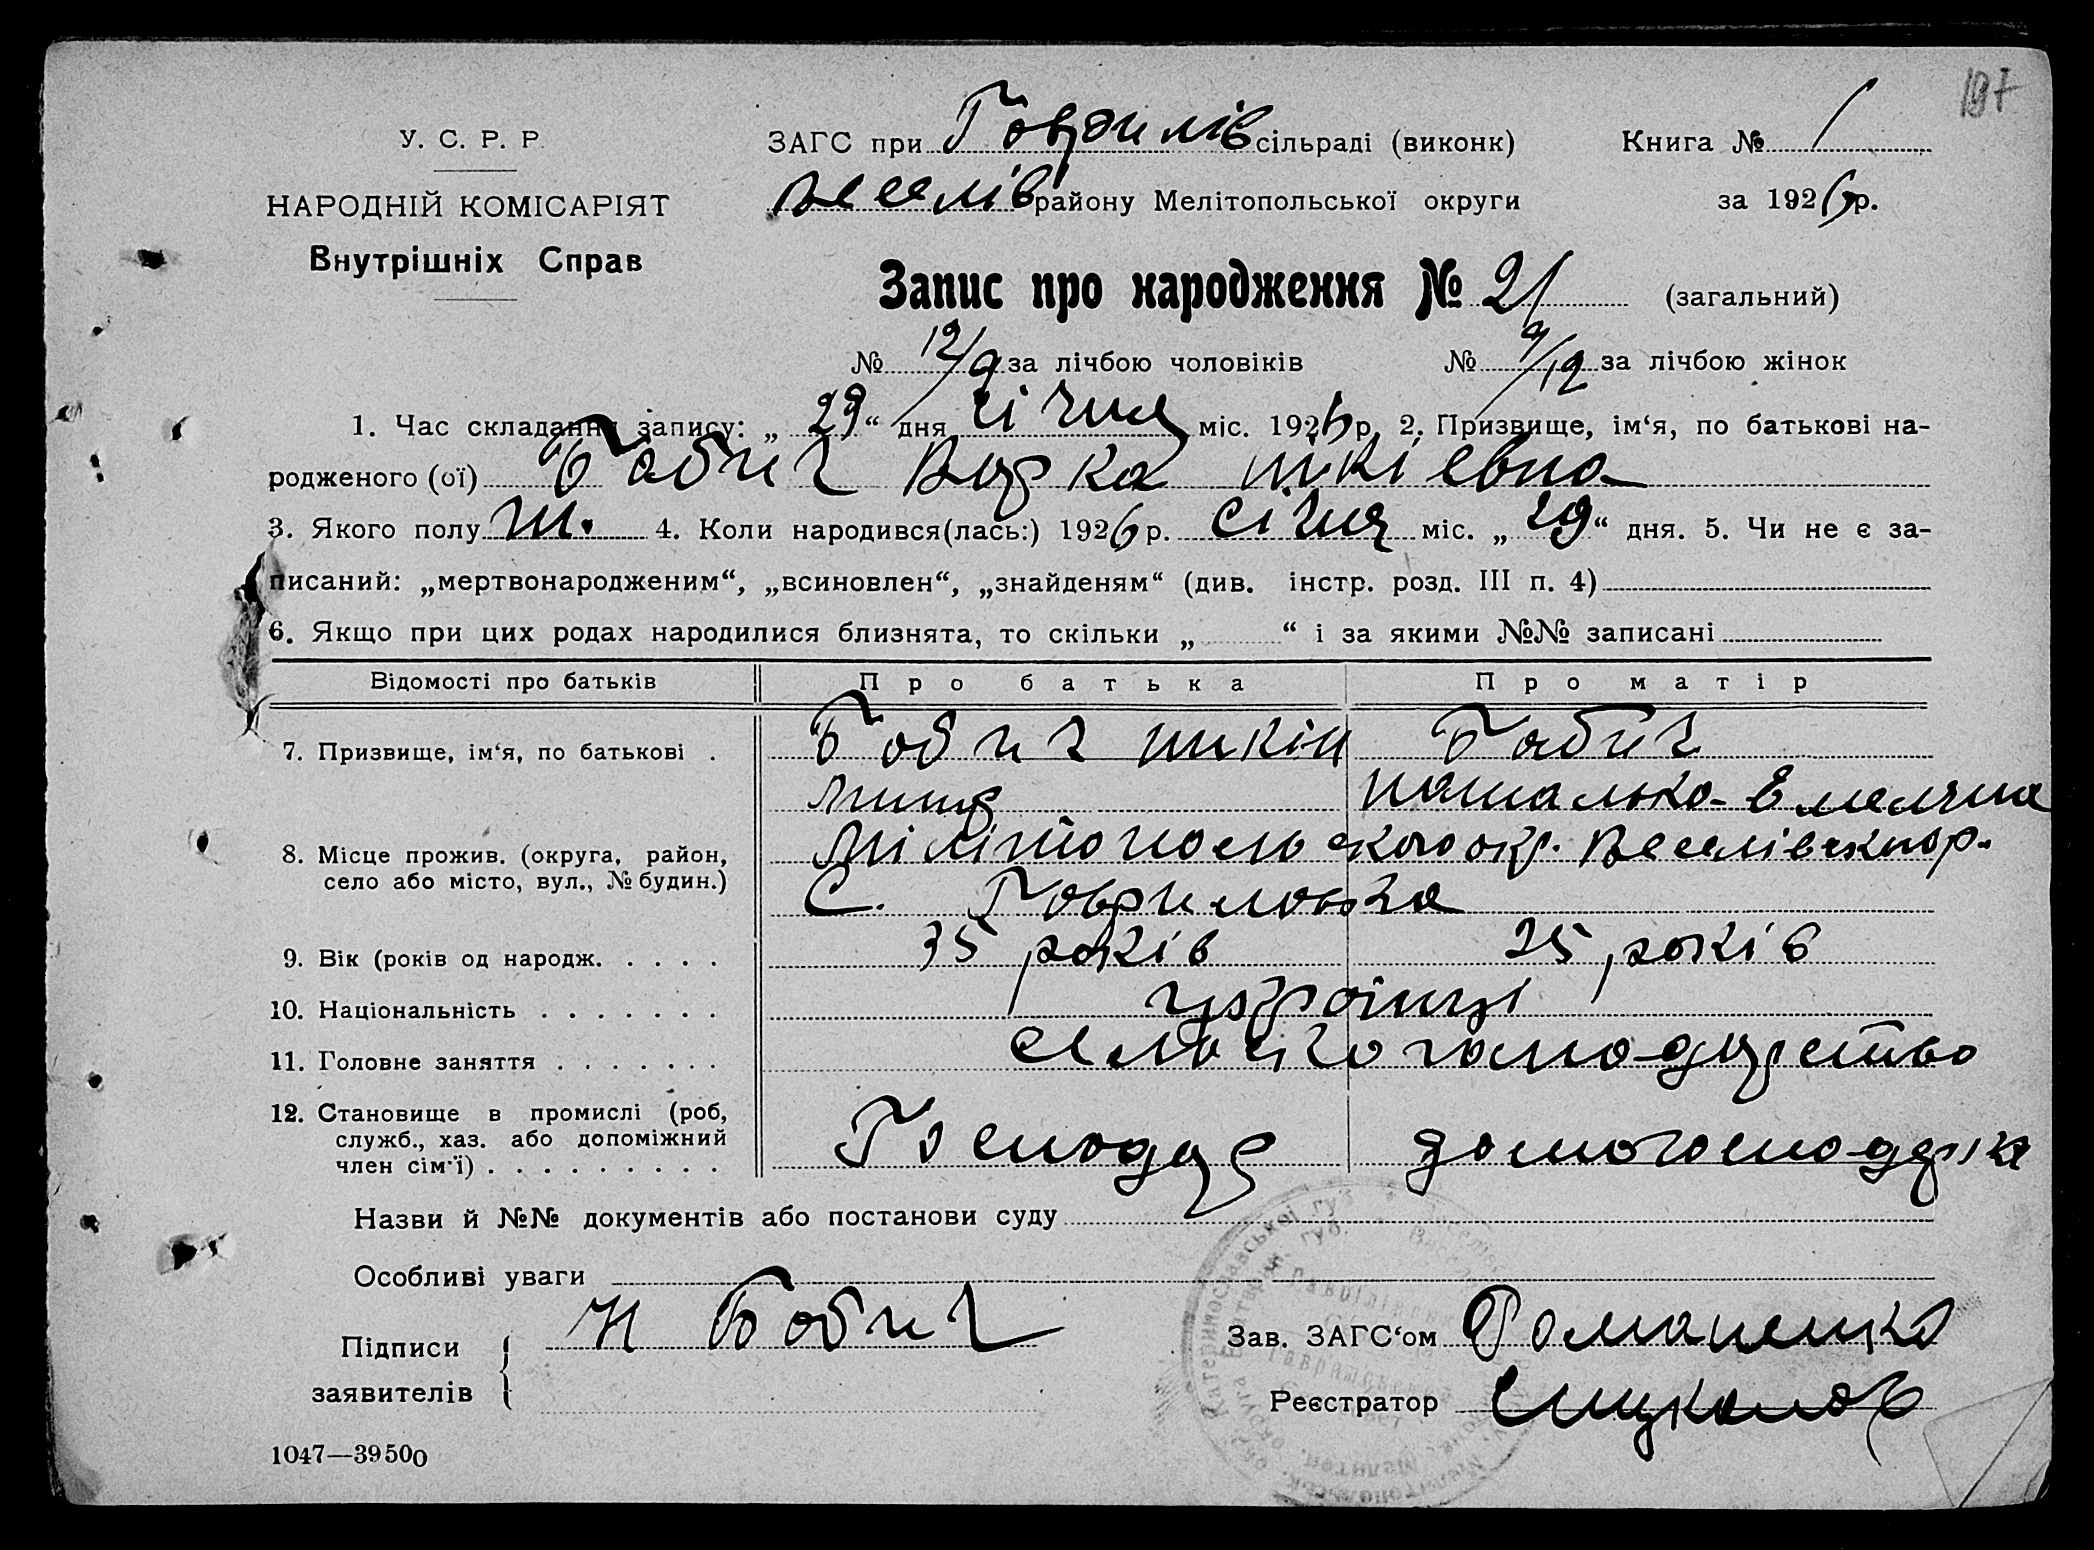 197
У. С. Р. Р.
НАРОДНІЙ КОМІСАРІЯТ
Внутрішніх Справ
ЗАГС при Гаврилів сільраді (виконк)
Веселів району Мелітопольської округи
Книга № 1
за 1926 р.
Запис про народження № 21 (загальний)
№ 12/9 за лічбою чоловіків № 9/12 за лічбою жінок
1. Час складання запису: „ 29 “ дня січня міс. 1926 р. 2. Призвище, ім‘я, по батькові на-
родженого (ої) Бабич
3. Якого полу 4. Коли народився(лась:) 1926 р. січня міс. „ 29 “ дня. 5. Чи не є за-
писаний: „мертвонародженим“, „всиновлен“, „знайденям“ (див. інстр. розд. III п. 4)
6. Якщо при цих родах народилися близнята, то скільки „ “ і за якими №№ записані
Відомості про батьків Про батька Про матір
7. Призвище, ім‘я, по батькові . Бабич Бабич
8. Місце прожив. (округа, район, Мілітопольського окр. Веселівськ. р.
село або місто, вул., № будин.) С. Гавриловка
9. Вік (років од народж. . . . . 35 років 25 років
10. Національність . . . . . . . украінці
11. Головне заняття . . . . . . .
12. Становище в промислі (роб, Господар домогосподарка
служб., хаз. або допоміжний
член сім‘ї) . . . . . . . . .
Назви й №№ документів або постанови суду
Особливі уваги
Підписи заявителів Н Бабич
Зав. ЗАГС‘ом Романенко
Реєстратор
1047—39500